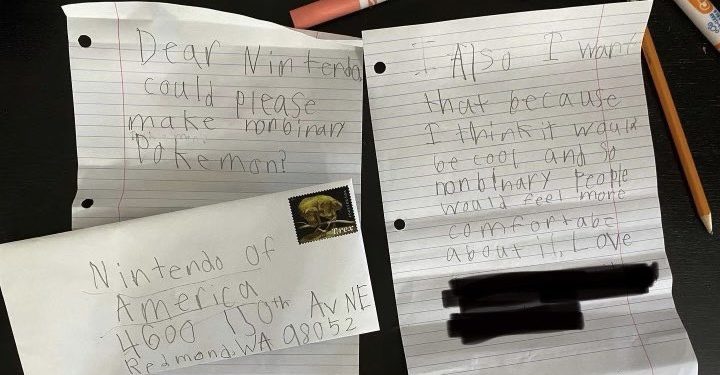 Dear Nintendo,
could please
make nonbinary
Pokemon?
I Also I want
that because
I think it would
be cool and so
nonbinary People
would feel more
comfortabe
about it, Love
Nintendo of
America
4600 150th Av NE
Redmond, WA 98052
T.rex